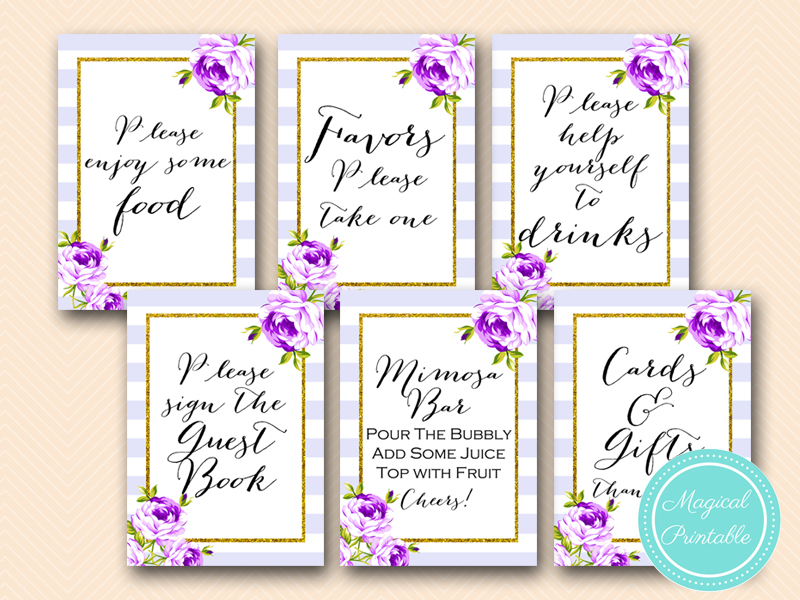 Please
enjoy some
food
Favors
Please
take one
Please
help
yourself
to
drinks
Please
sign the
Guest
Book
Mimosa
Bar
POUR THE BUBBLY
ADD SOME JUICE
TOP WITH FRUIT
Cheers!
Cards
&
Gifts
Than
Magical
Printable